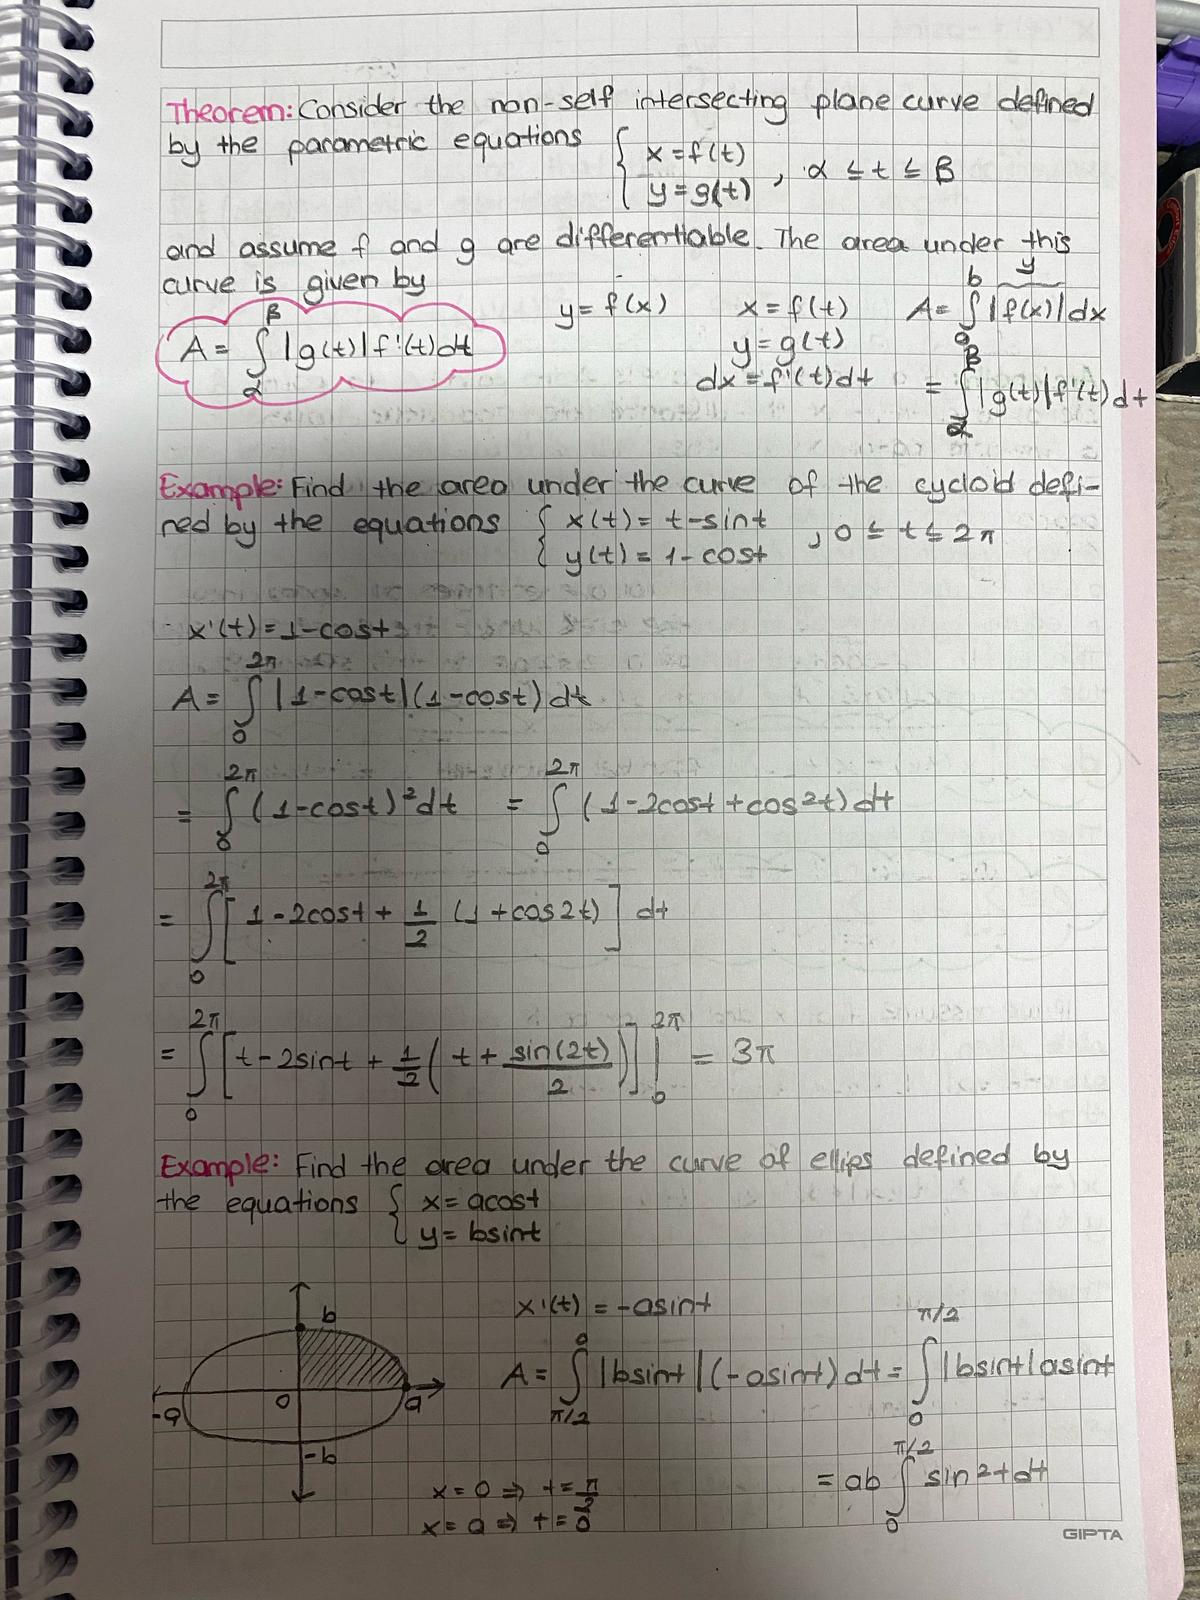 Theorem: Consider the non-self intersecting plane curve defined
by the parametric equations { x = f(t)
y = g(t) , α ≤ t ≤ β
and assume f and g are differentiable. The area under this
curve is given by
A = ∫_α^β |g(t)| f'(t) dt
y = f(x)
x = f(t)
y = g(t)
dx = f'(t) dt
y
A = ∫_a^b |f(x)| dx
= ∫_α^β |g(t)| f'(t) dt
Example: Find the area under the curve of the cycloid defi-
ned by the equations { x(t) = t - sint
y(t) = 1 - cost , 0 ≤ t ≤ 2π
x'(t) = 1 - cost
A = ∫_0^2π |1 - cost| (1 - cost) dt
= ∫_0^2π (1 - cost)² dt = ∫_0^2π (1 - 2cost + cos²t) dt
= ∫_0^2π [ 1 - 2cost + 1/2 (1 + cos2t) ] dt
= ∫_0^2π [ t - 2sint + 1/2 ( t + sin(2t)/2 ) ] |_0^2π = 3π
Example: Find the area under the curve of ellips defined by
the equations { x = acost
y = bsint
b
-a 0 a
-b
x'(t) = -asint
A = ∫_π/2^0 |bsint| (-asint) dt = ∫_0^π/2 |bsint| asint
= ab ∫_0^π/2 sin²t dt
x = 0 ⇒ t = π/2
x = a ⇒ t = 0
GIPTA